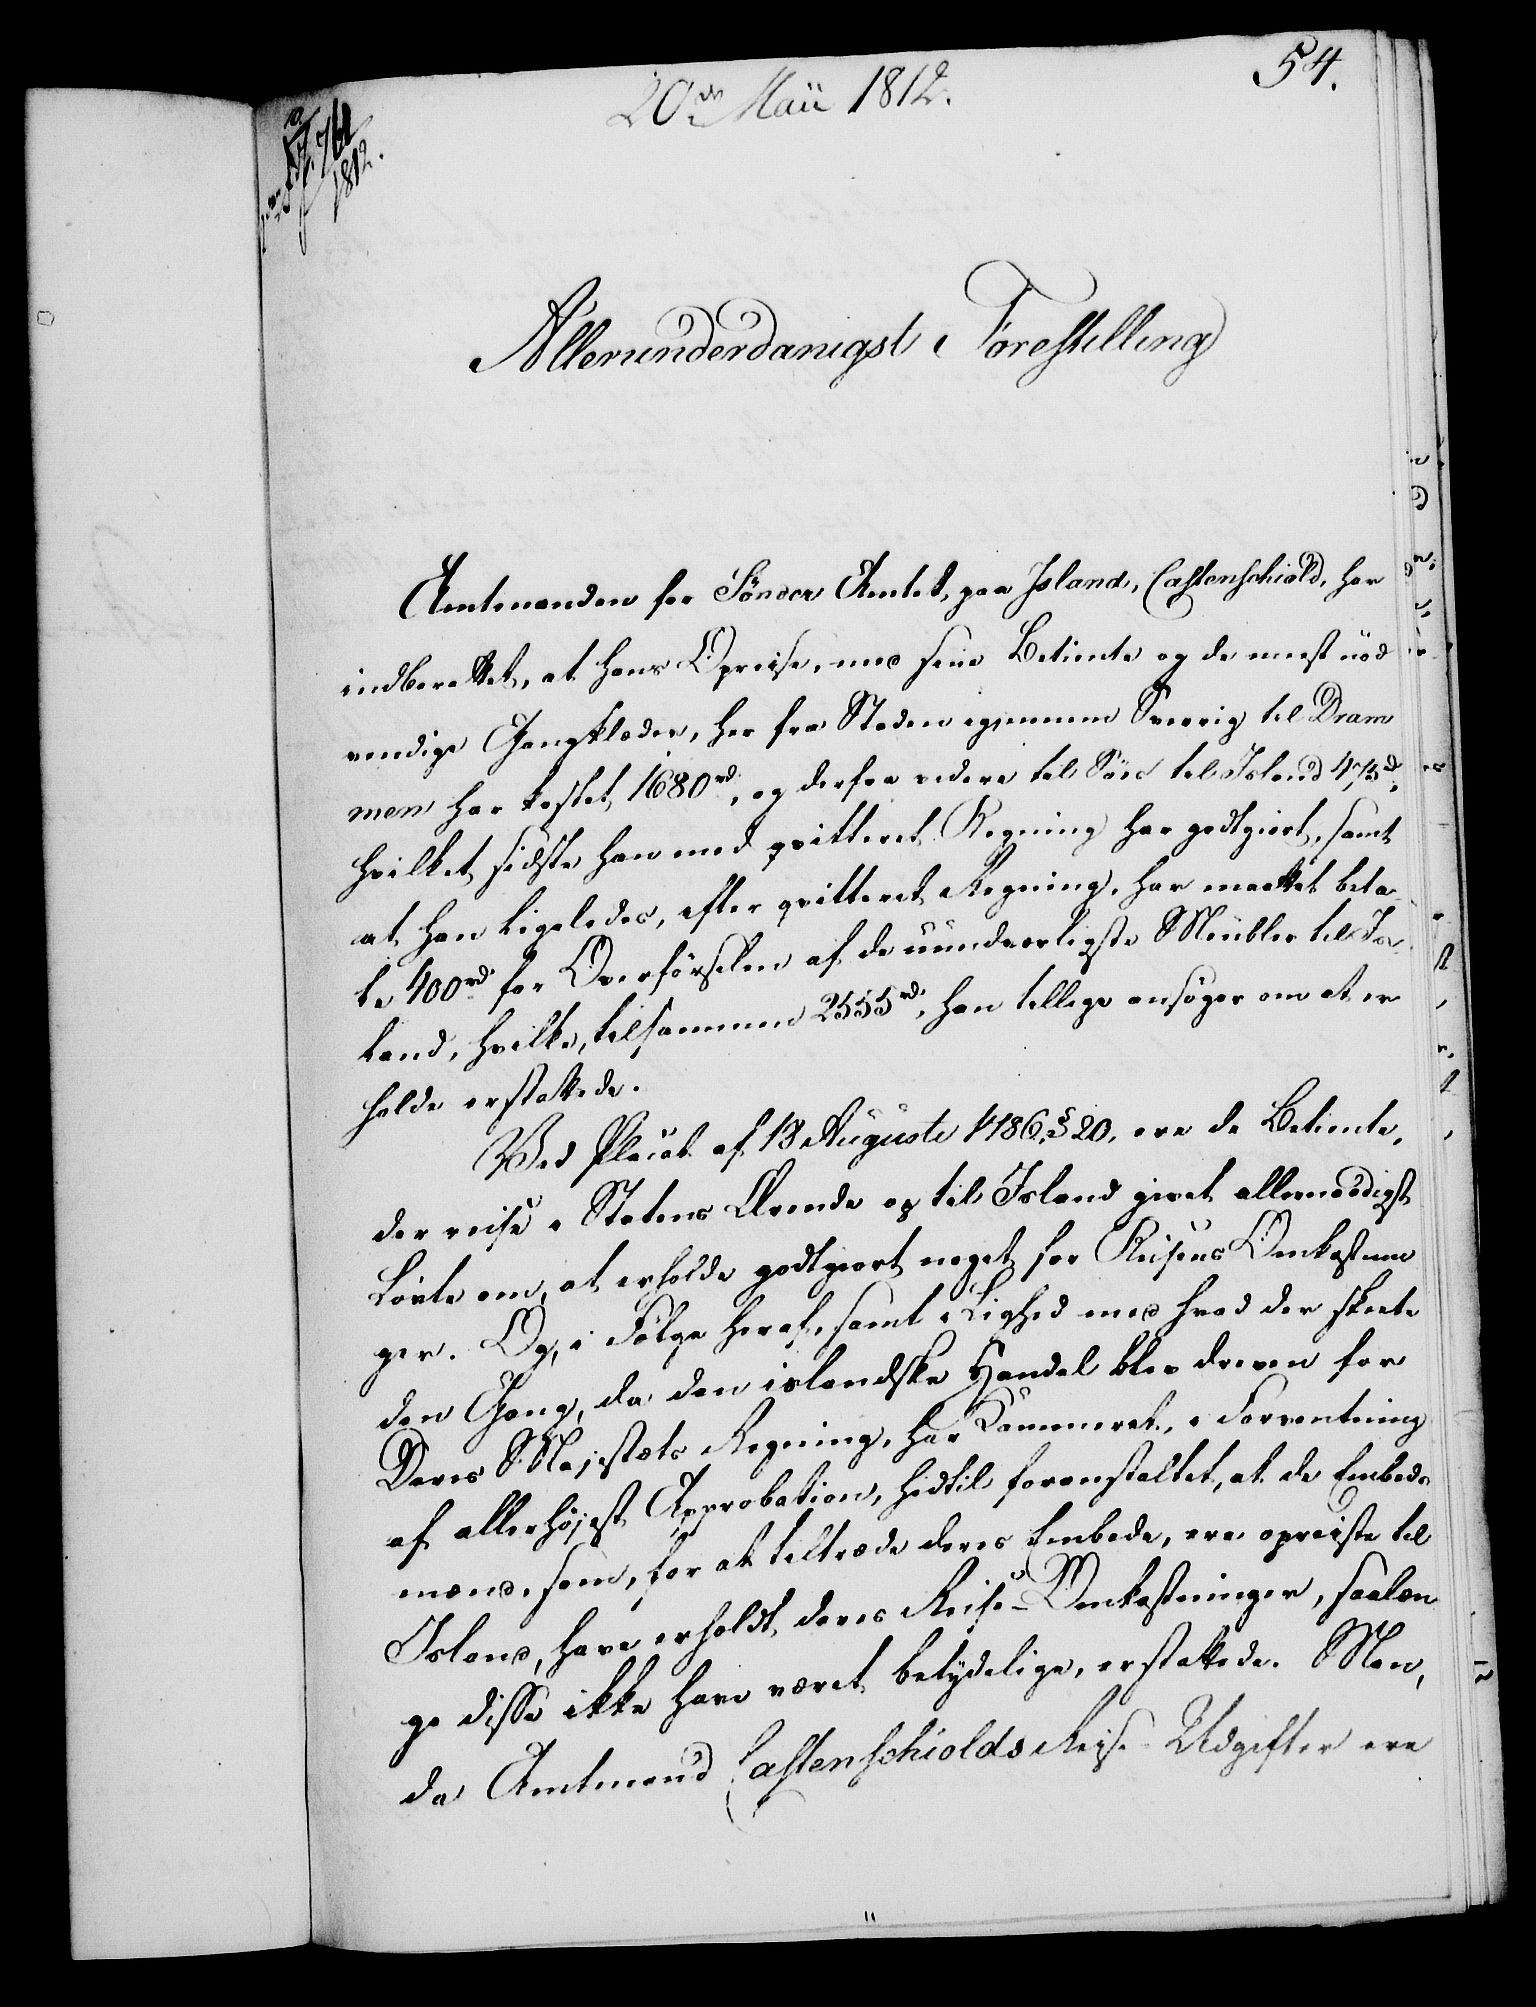 20de Maii 1812.
54.
1812.
Allerunderdanigst Forestilling
Amtmanden for Sønder Amtet, paa Island, Castenschiold, har
indberettet, at hans Opreise, med sine Betiente og de meest nød
vendige Gangklæder, her fra Staden igiennem Sverrig til Dram
men har kostet 1680 rd, og derfra videre til Søes til Island 475 rd,
hvilket sidste han med qvitteret Regning har godtgiort, samt
at han ligeledes, efter qvitteret Regning, har maattet beta
le 400 rd for Overførselen af de uundværligste Meubler til Is
land, hvilke, tilsammen 2555 rd, han tillige ansøger om at er
holde erstattede.
Ved Placat af 18 Augusti 1786, § 20, ere de Betiente,
der reise i Statens Ærende op til Island givet allernaadigst
Løvte om, at erholde godtgiort noget for Reisens Omkostnin
ger. Og, i Følge heraf, samt i Lighed med hvad der skeete
den Gang, da den islandske Handel blev dreven for
Deres Majestæts Regning, har Kammeret, i Forventning
af allerhøjest Approbation, hidtil foranstaltet, at de Embeds
mænd, som, for at tiltræde deres Embede, ere opreiste til
Island, have erholdt deres Reise-Omkostninger, saalæn
ge disse ikke have været betydelige, erstattede. Men,
da Amtmand Castenschiolds Reise-Udgifter ere